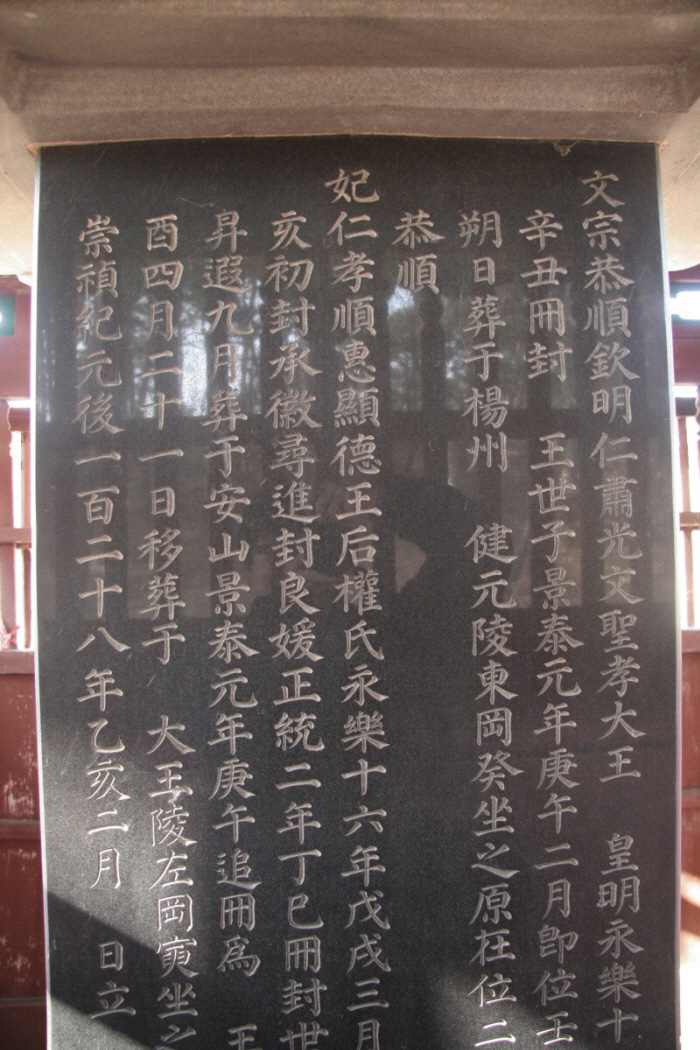 文宗恭順欽明仁肅光文聖孝大王 皇明永樂十
辛丑冊封 王世子景泰元年庚午二月卽位壬
朔日葬于楊州 健元陵東岡癸坐之原在位二
恭順
妃仁孝順惠顯德王后權氏永樂十六年戊戌三月
亥初封承徽尋進封良媛正統二年丁巳冊封世
昇遐九月葬于安山景泰元年庚午追冊爲 王
酉四月二十一日移葬于 大王陵左岡寅坐之
崇禎紀元後一百二十八年乙亥二月 日立